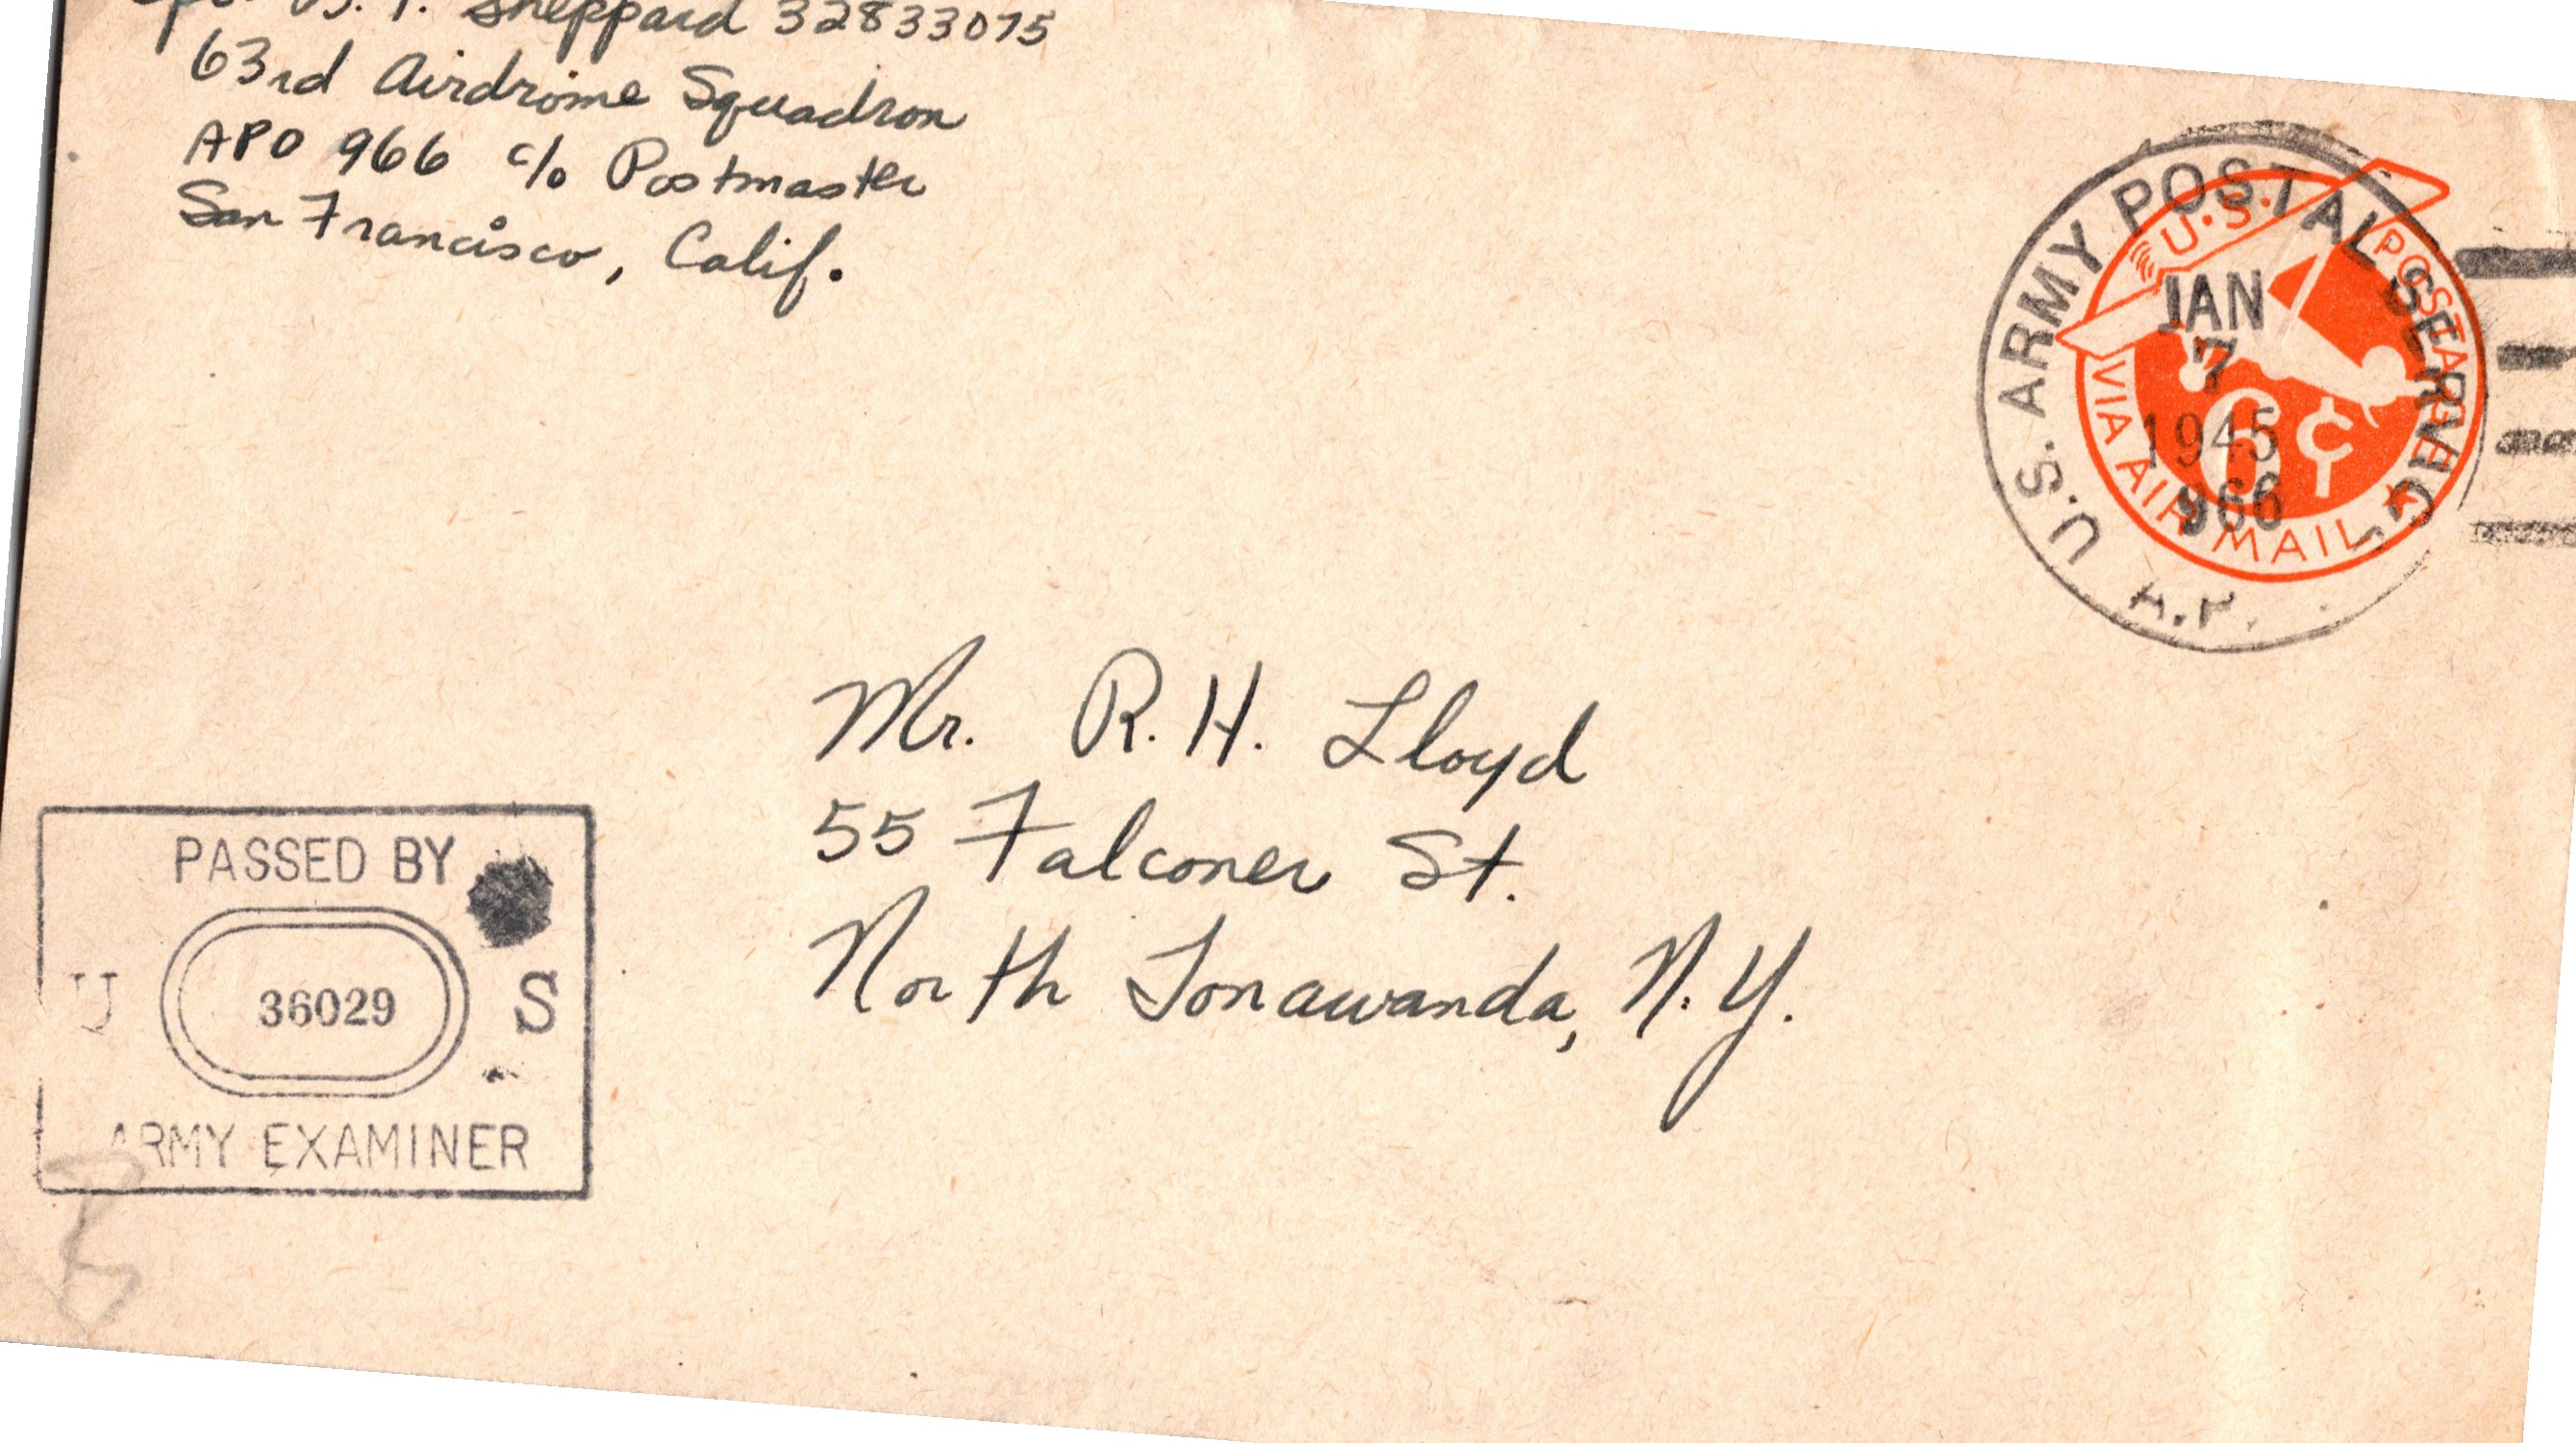 Sheppard 32833075
63rd Airdrome Squadron
APO 966 c/o Postmaster
San Francisco, Calif.
U.S. ARMY POSTAL SERVICE
A.P.
JAN
7
1945
966
U.S. POSTAGE
VIA AIR MAIL
6¢
Mr. R. H. Lloyd
55 Falconer St.
North Tonawanda, N.Y.
PASSED BY
U 36029 S
ARMY EXAMINER